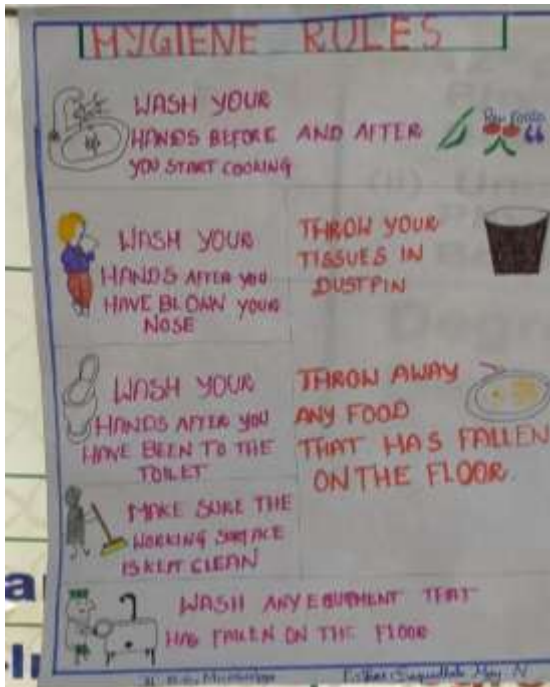 HYGIENE RULES
WASH YOUR
HANDS BEFORE AND AFTER
YOU START COOKING
Raw Foods
WASH YOUR
HANDS AFTER YOU
HAVE BLOWN YOUR
NOSE
THROW YOUR
TISSUES IN
DUSTPIN
WASH YOUR
HANDS AFTER YOU
HAVE BEEN TO THE
TOILET
THROW AWAY
ANY FOOD
THAT HAS FALLEN
ON THE FLOOR
MAKE SURE THE
WORKING SURFACE
IS KEPT CLEAN
WASH ANY EQUIPMENT THAT
HAS FALLEN ON THE FLOOR